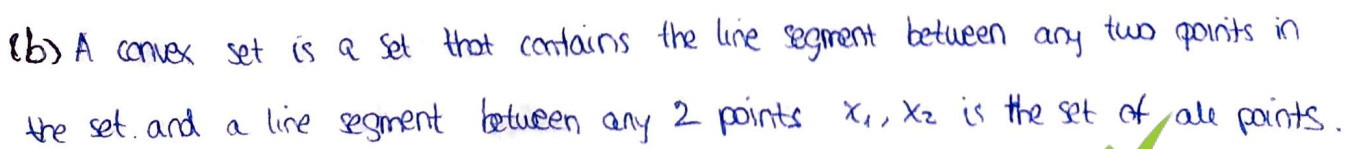 (b) A convex set is a set that contains the line segment between any two points in
the set. and a line segment between any 2 points x₁, x₂ is the set of all points.